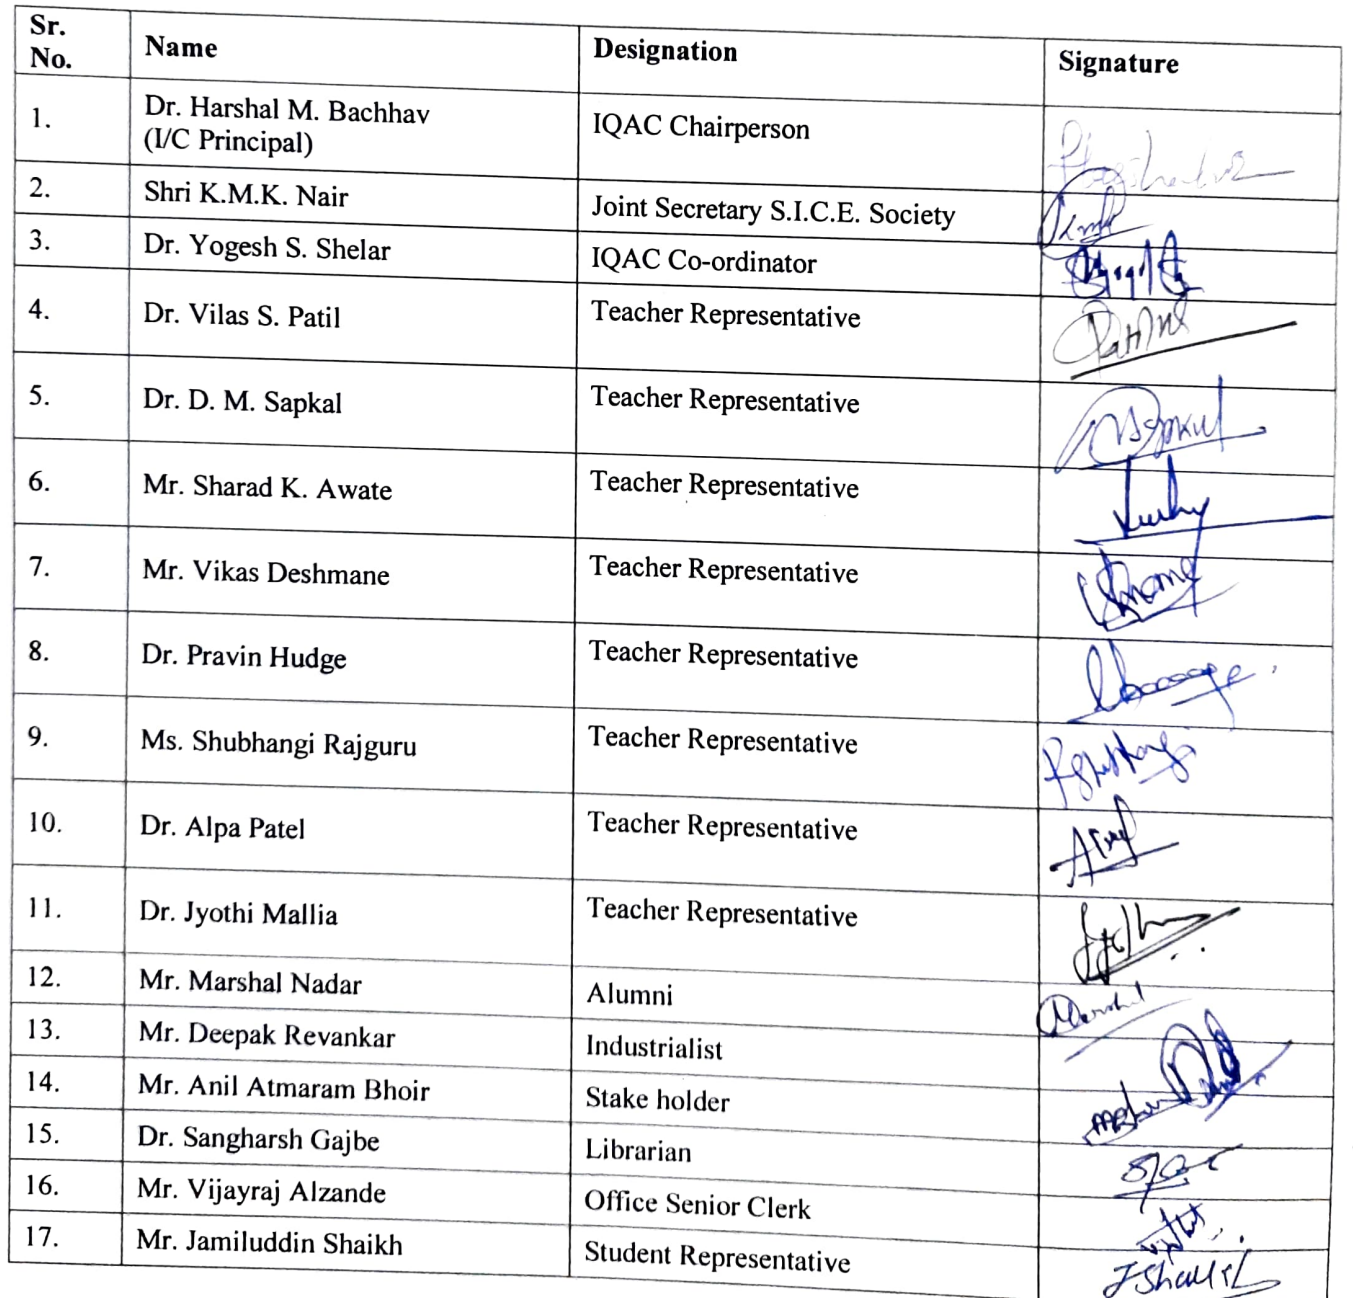 Sr. No. Name Designation Signature
1. Dr. Harshal M. Bachhav (I/C Principal) IQAC Chairperson
2. Shri K.M.K. Nair Joint Secretary S.I.C.E. Society
3. Dr. Yogesh S. Shelar IQAC Co-ordinator
4. Dr. Vilas S. Patil Teacher Representative
5. Dr. D. M. Sapkal Teacher Representative
6. Mr. Sharad K. Awate Teacher Representative
7. Mr. Vikas Deshmane Teacher Representative
8. Dr. Pravin Hudge Teacher Representative
9. Ms. Shubhangi Rajguru Teacher Representative
10. Dr. Alpa Patel Teacher Representative
11. Dr. Jyothi Mallia Teacher Representative
12. Mr. Marshal Nadar Alumni
13. Mr. Deepak Revankar Industrialist
14. Mr. Anil Atmaram Bhoir Stake holder
15. Dr. Sangharsh Gajbe Librarian
16. Mr. Vijayraj Alzande Office Senior Clerk
17. Mr. Jamiluddin Shaikh Student Representative